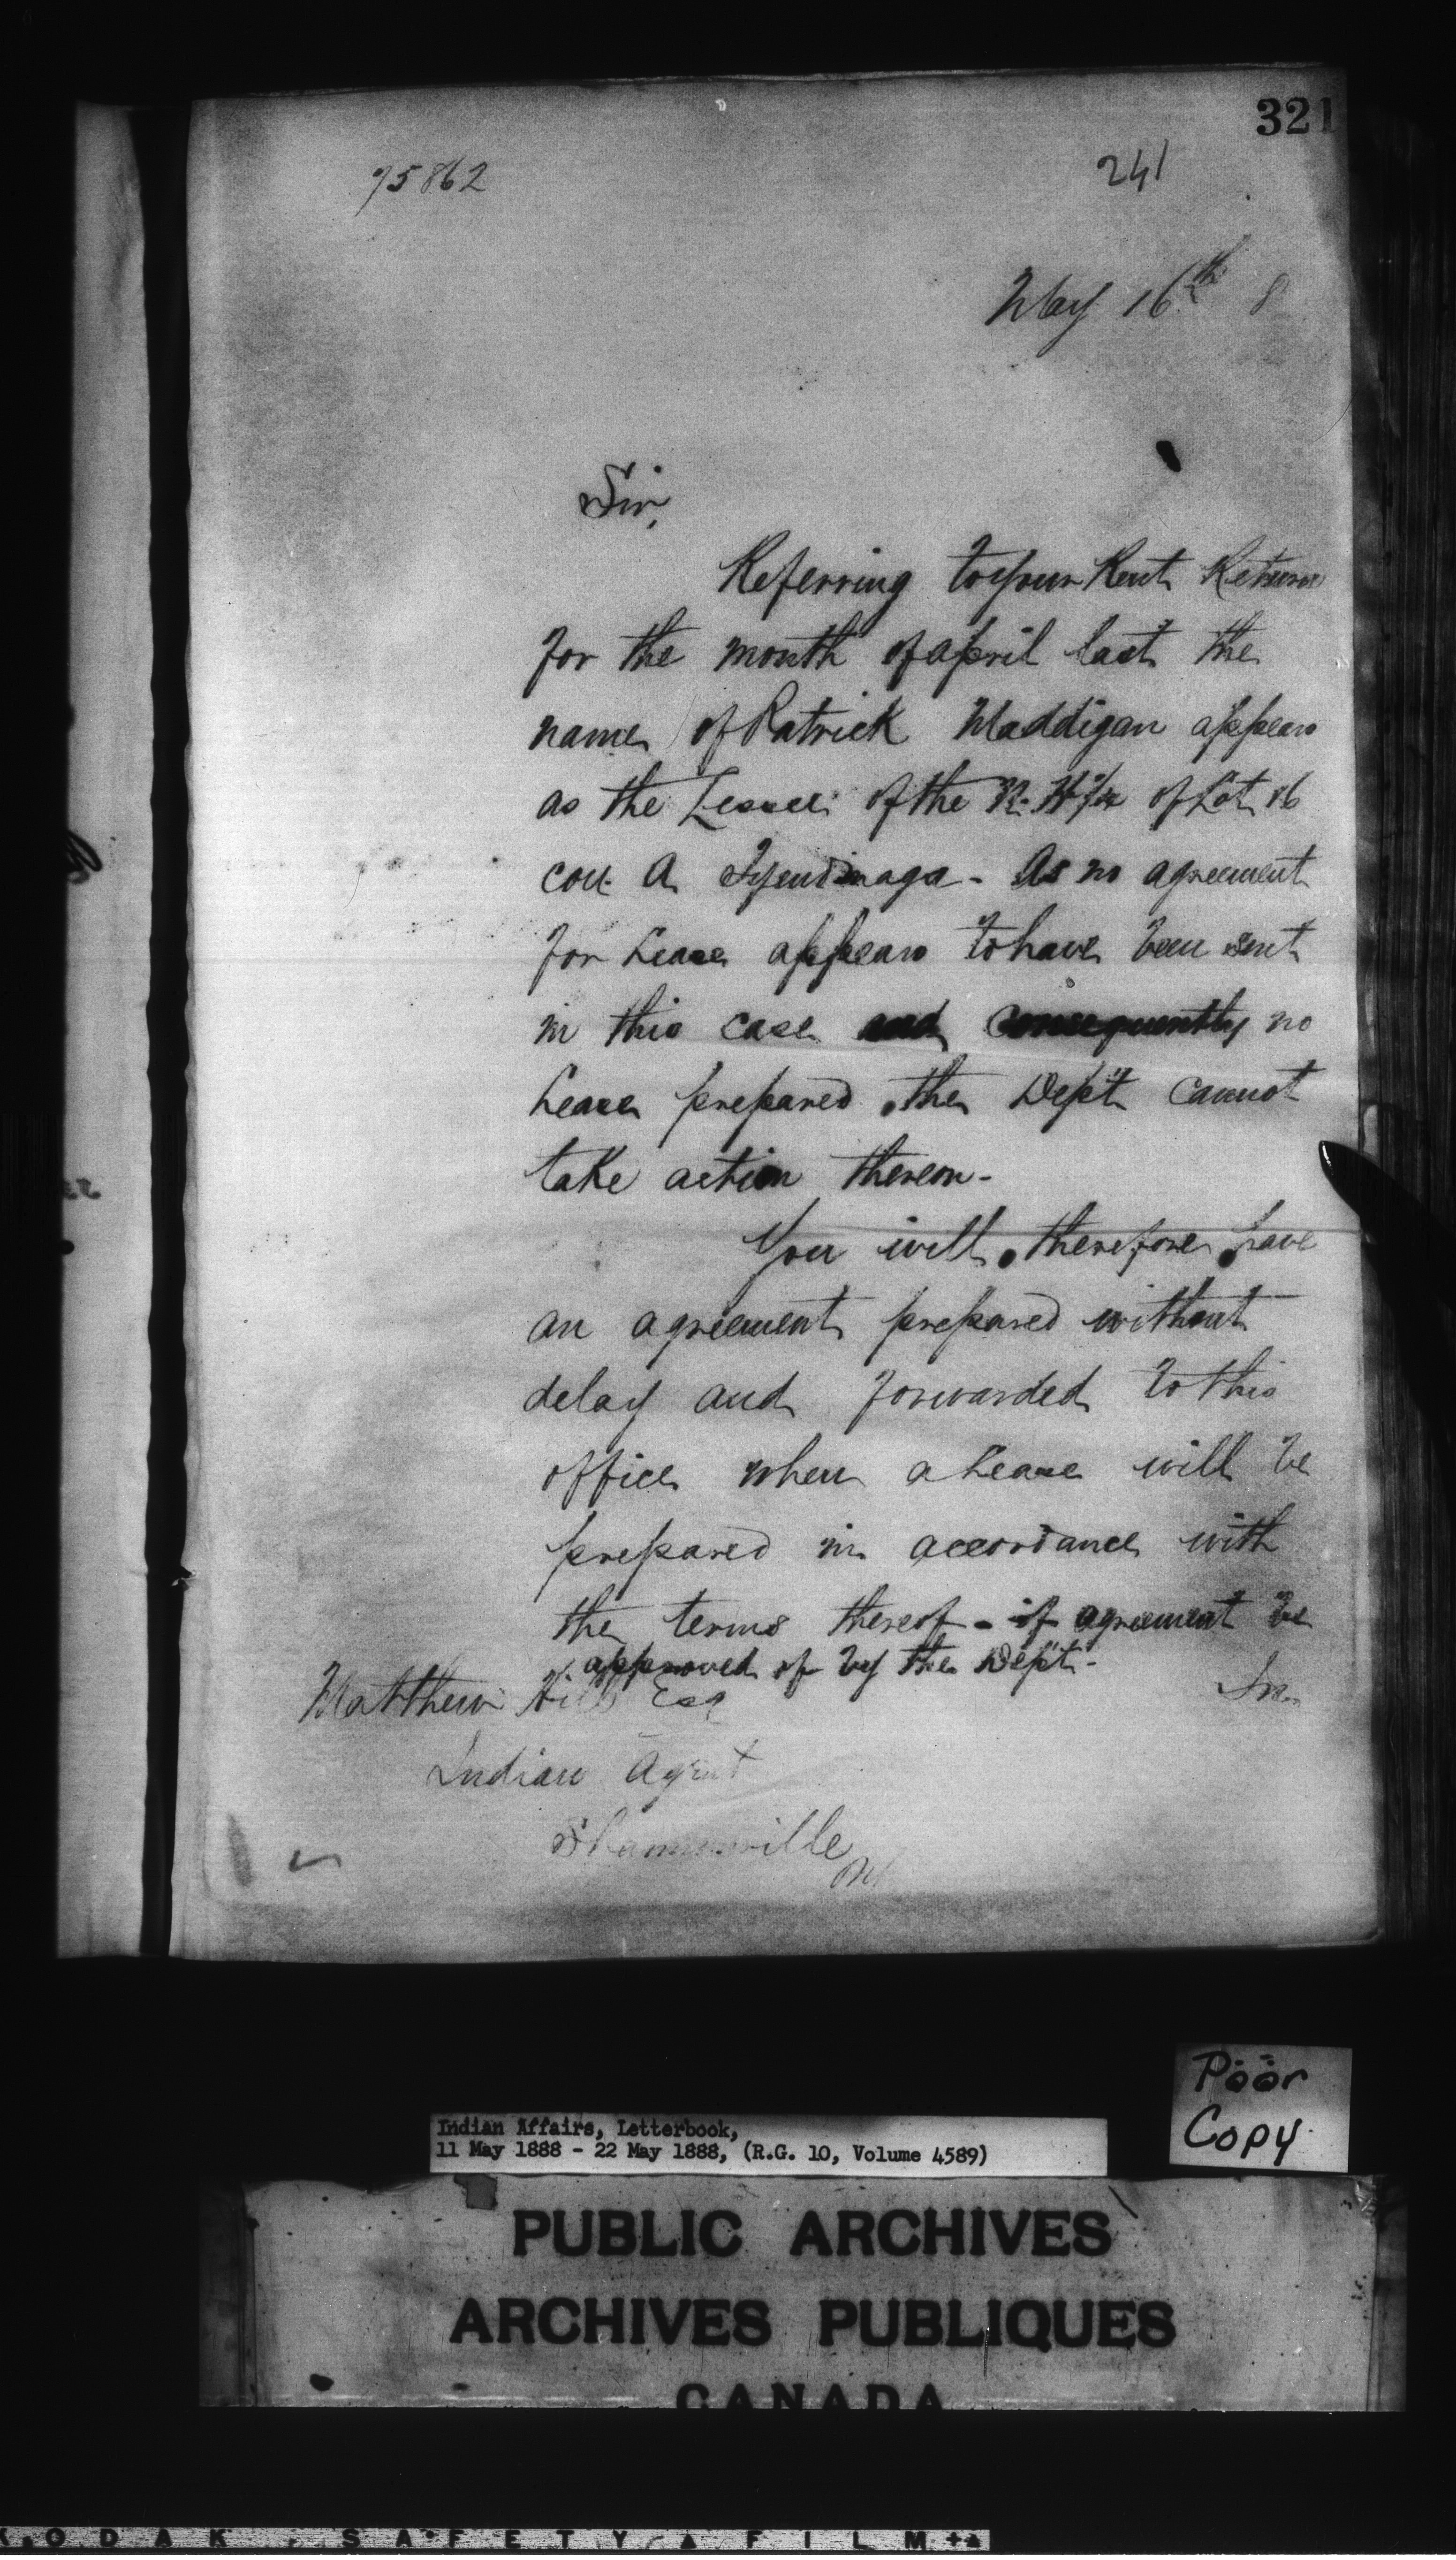 321
75862
241
May 16th 8
Sir,
Referring to your Rent Return
for the month of April last the
name of Patrick Maddigan appears
as the Lessee of the N. W ¼ of Lot 16
con. A Tyendinaga - As no agreement
for Lease appears to have been sent
in this case and consequently no
Lease prepared, the Dep't cannot
take action thereon -
You will, therefore, have
an agreement prepared without
delay and forwarded to this
office when a Lease will be
prepared in accordance with
the terms thereof - if agreement be
approved of by the Dep't -
Matthew Hill Esq
Indian Agent
Shannonville
Poor
Copy
Indian Affairs, Letterbook,
11 May 1888 - 22 May 1888, (R.G. 10, Volume 4589)
PUBLIC ARCHIVES
ARCHIVES PUBLIQUES
CANADA
KODAK SAFETY FILM